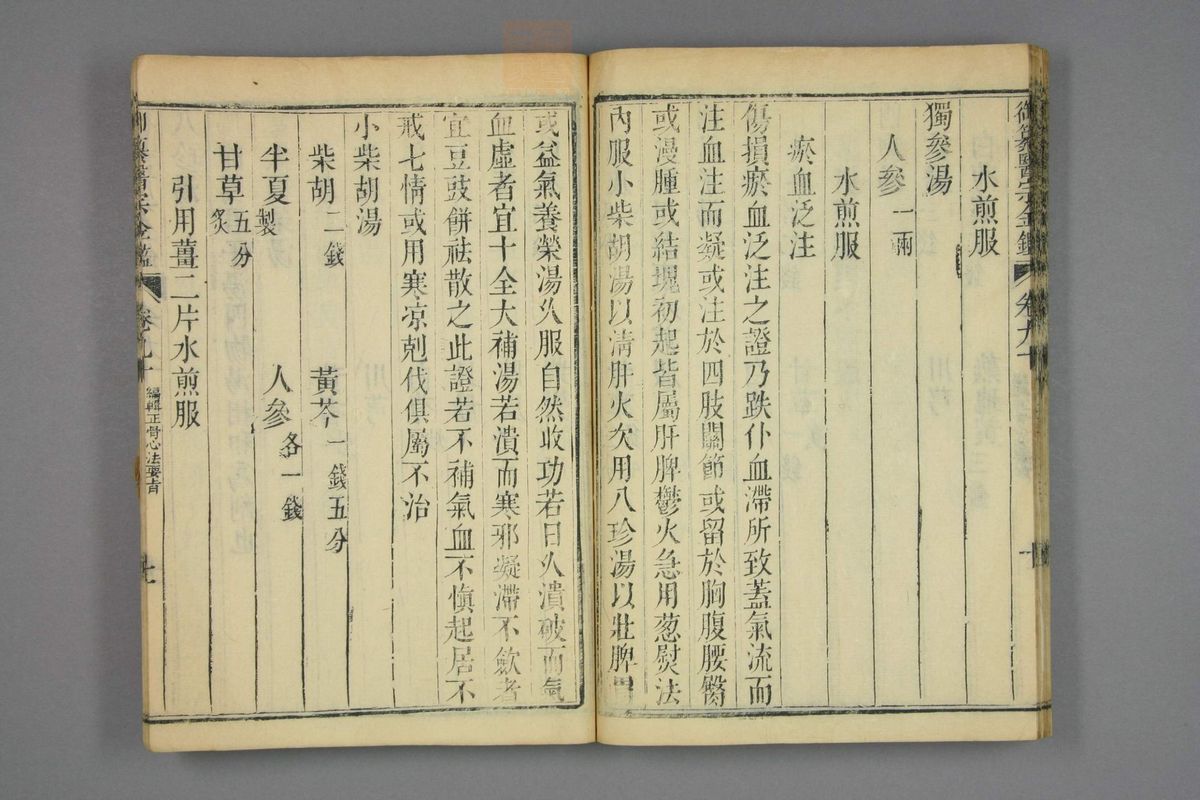 御纂醫宗金鑑 卷九十
水煎服
獨參湯
人參一兩
水煎服
瘀血泛注
傷損瘀血泛注之證乃跌仆血滯所致蓋氣流而
注血注而凝或注於四肢關節或留於胸腹腰臀
或漫腫或結塊初起皆屬肝脾鬱火急用葱熨法
內服小柴胡湯以清肝火次用八珍湯以壯脾胃
或益氣養榮湯久服自然收功若日久潰破而氣
血虛者宜十全大補湯若潰而寒邪凝滯不斂者
宜豆豉餅祛散之此證若不補氣血不慎起居不
戒七情或用寒凉剋伐俱屬不治
小柴胡湯
柴胡二錢 黃芩一錢五分
半夏製 人參各一錢
甘草炙五分
引用薑二片水煎服
卷九十 編輯正骨心法要旨